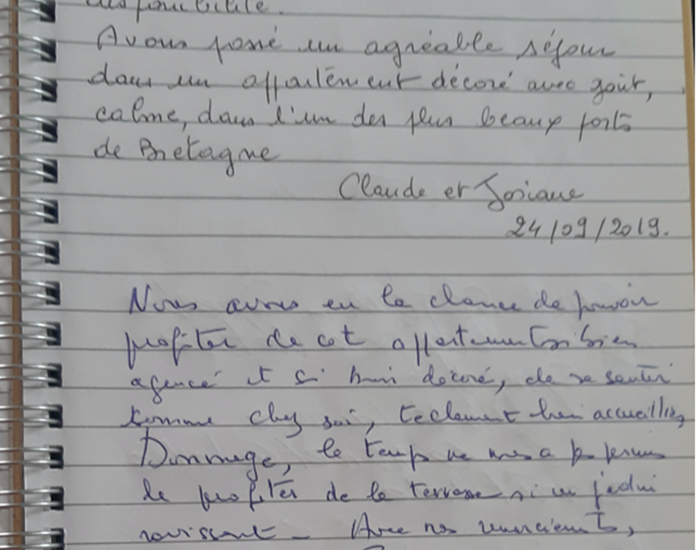 disponibilité.
Avons passé un agréable séjour
dans un appartement décoré avec goût,
calme, dans l'un des plus beaux ports
de Bretagne
Claude et Josiane
24/09/2019.
Nous avons eu la chance de pouvoir
profiter de cet appartement si bien
agencé et si bien décoré, de se sentir
comme chez soi, tellement bien accueillis,
Dommage, le temps ne nous a pas permis
de profiter de la terrasse ni du jardin
ravissant - Avec nos remerciements,